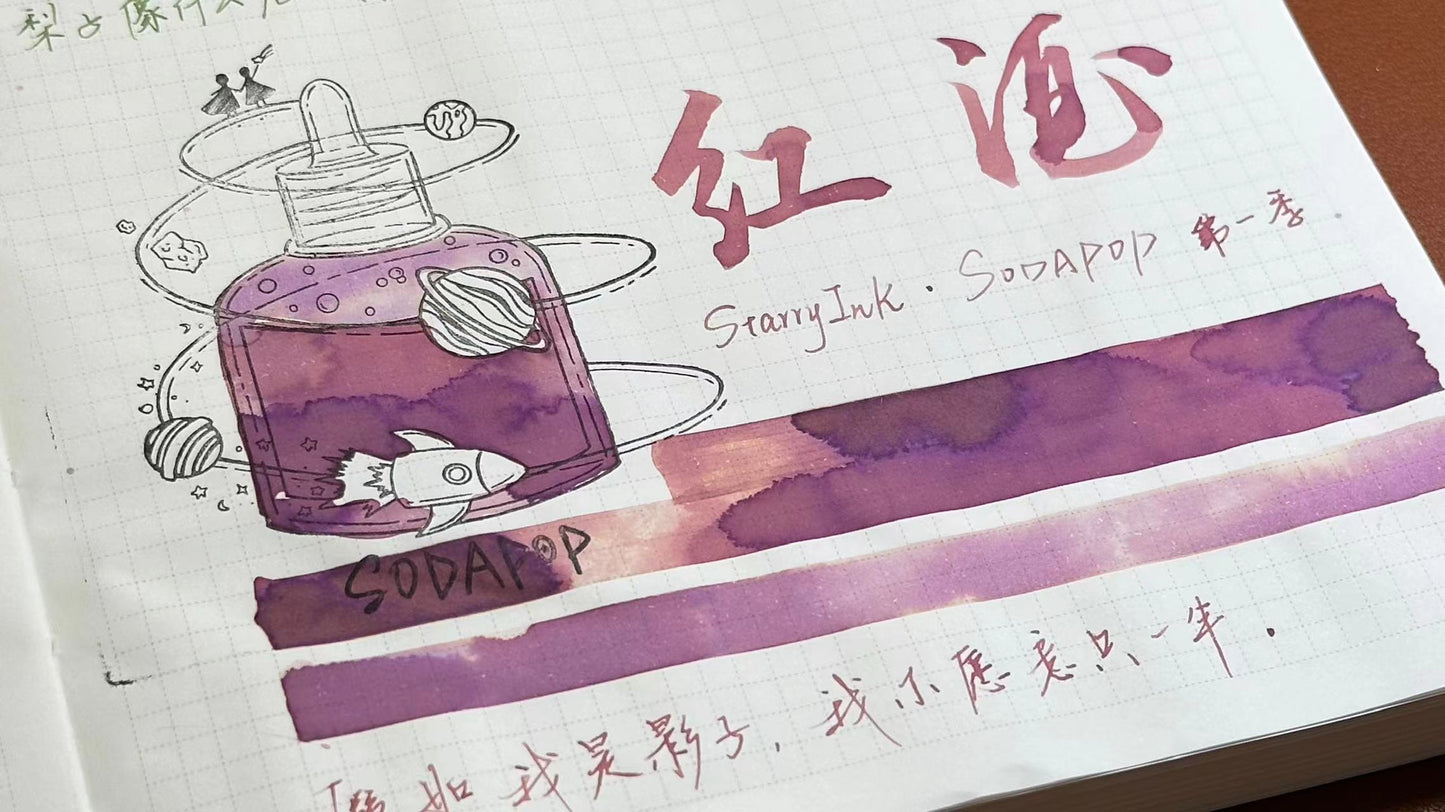 梨子像什么
红酒
StarryInk · SODAPOP 第一季
SODAPOP
如我是影子，我不愿意只一半.